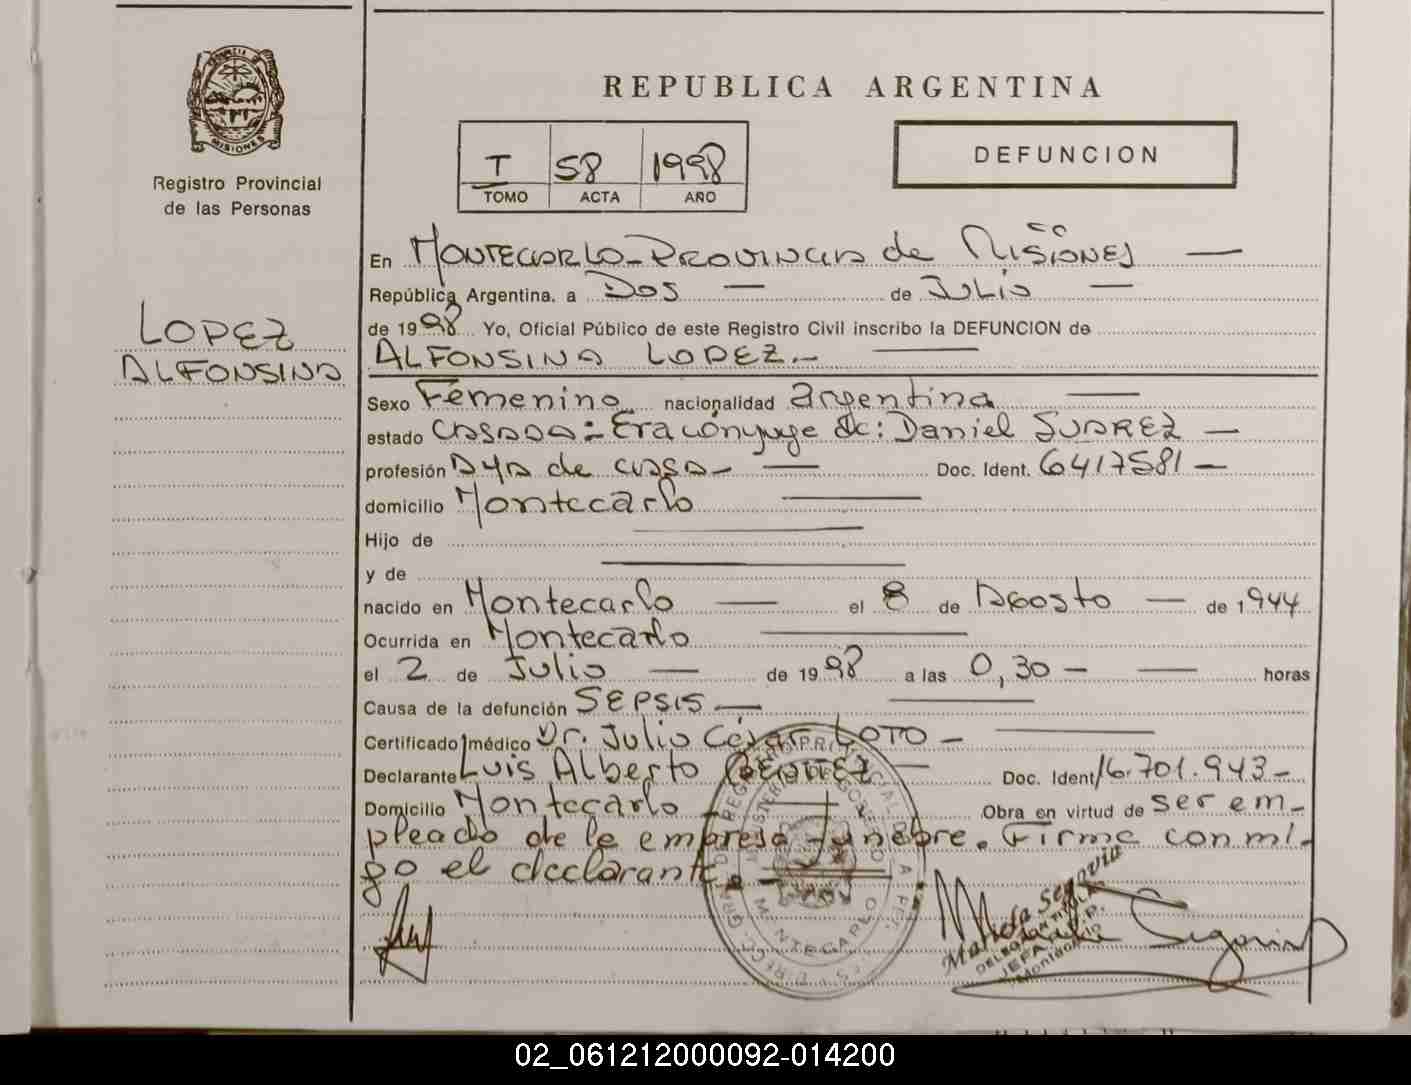 REPUBLICA ARGENTINA
PROVINCIA DE
MISIONES
Registro Provincial
de las Personas
I 58 1998
TOMO ACTA AÑO
DEFUNCION
LOPEZ
ALFONSINA
En MONTECARLO-PROVINCIA de MISIONES —
República Argentina, a DOS — de JULIO —
de 1998 Yo, Oficial Público de este Registro Civil inscribo la DEFUNCION de
ALFONSINA LOPEZ.- —
Sexo Femenino nacionalidad argentina —
estado CASADA:-Era cónyuge de: Daniel SUAREZ —
profesión AMA de CASA- — Doc. Ident. 6417581 —
domicilio Montecarlo —
Hijo de —
y de —
nacido en Montecarlo — el 8 de Agosto — de 1944
Ocurrida en Montecarlo —
el 2 de Julio — de 1998 a las 0,30 — — horas
Causa de la defunción SEPSIS — —
Certificado médico Dr. Julio César LOTO — —
Declarante Luis Alberto — Doc. Ident 16.701.943-
Domicilio Montecarlo — Obra en virtud de ser em-
pleado de la empresa fúnebre. Firma con mi-
go el declarante.-
MONTECARLO
Segovia
DELEGADA TITULAR
Montecarlo
02_061212000092-014200